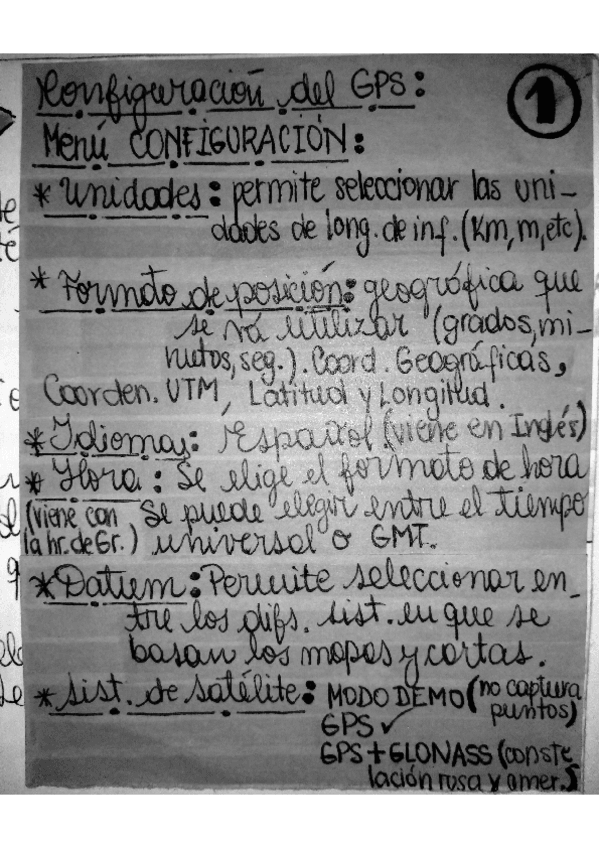 Configuración del GPS:
1
Menú CONFIGURACIÓN:
* Unidades: permite seleccionar las uni-
dades de long. de inf. (Km, m, etc).
* Formato de posición: geográfica que
se vá utilizar (grados, mi-
nutos, seg.). Coord. Geográficas,
Coorden. UTM, Latitud y Longitud.
* Idiomas: Español (viene en Inglés)
* Hora: Se elige el formato de hora
(viene con Se puede elegir entre el tiempo
la hr. de Gr.) universal o GMT.
* Datum: Permite seleccionar en-
tre los difs. sist. en que se
basan los mapas y cartas.
* Sist. de satélite: MODO DEMO (no captura
puntos)
GPS ✓
GPS + GLONASS (conste
lación rusa y amer.)